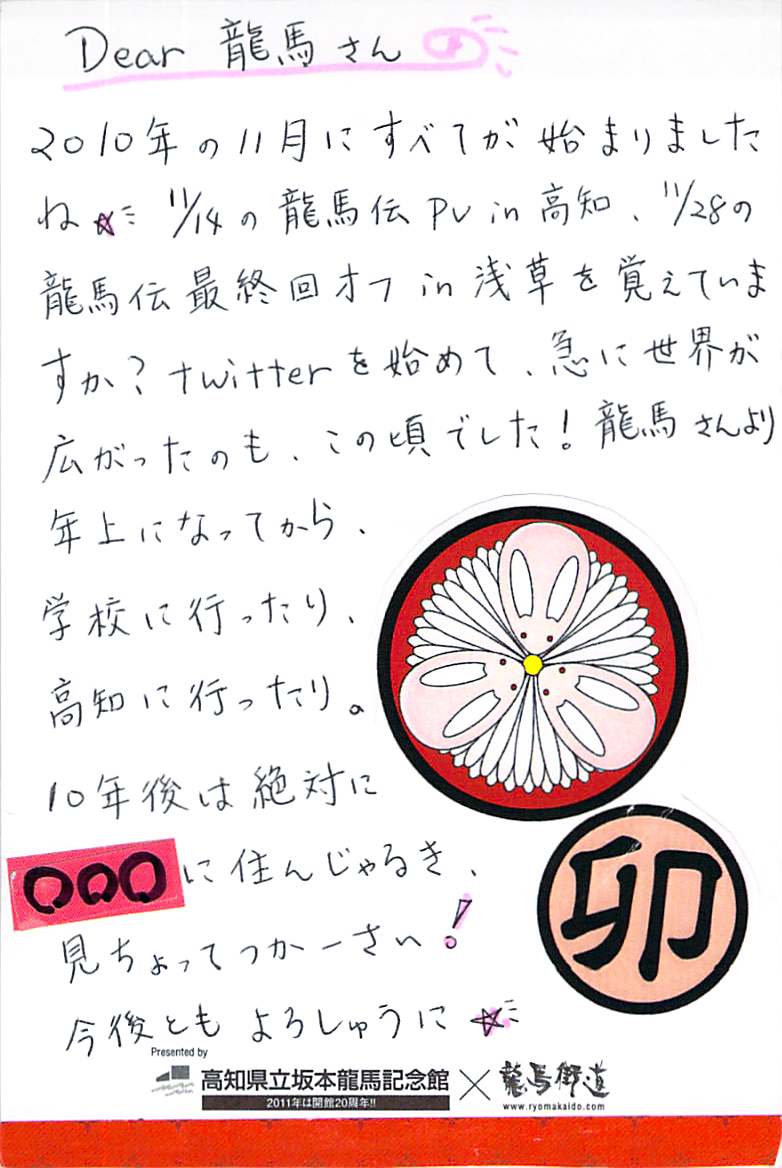 Dear 龍馬さん
2010年の11月にすべてが始まりました
ね☆ 11/14の龍馬伝PV in 高知、11/28の
龍馬伝最終回オフ in 浅草を覚えていま
すか?twitterを始めて、急に世界が
広がったのも、この頃でした!龍馬さんより
年上になってから、
学校に行ったり、
高知に行ったり。
10年後は絶対に
○○○に住んじゃるき、
見ちょってつかーさい!
今後とも よろしゅうに☆
卯
Presented by
高知県立坂本龍馬記念館×龍馬街道
2011年は開館20周年!!
www.ryomakaido.com